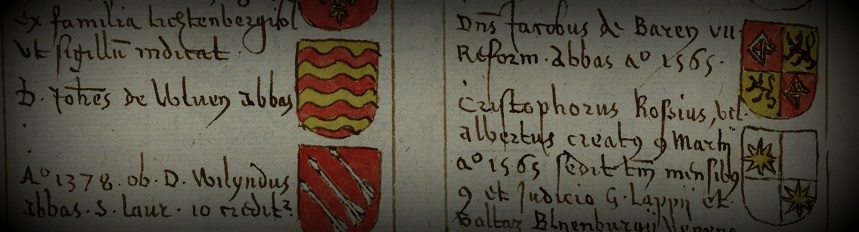 Ex familia lichtenbergist
vt sigillu indicat.
D. Johes de Uluen abbas
A° 1378. ob. D. Wilyndus
abbas. S. Laur. 10 credit
Dns Jacobus de Baren vii
Reform. abbas a° 1565.
Cristophorus Rossius, vel
albertus creat9 9 Martij
a° 1565 sedit tm mensib9
9 et Judicio G. Lappij et
Baltaz